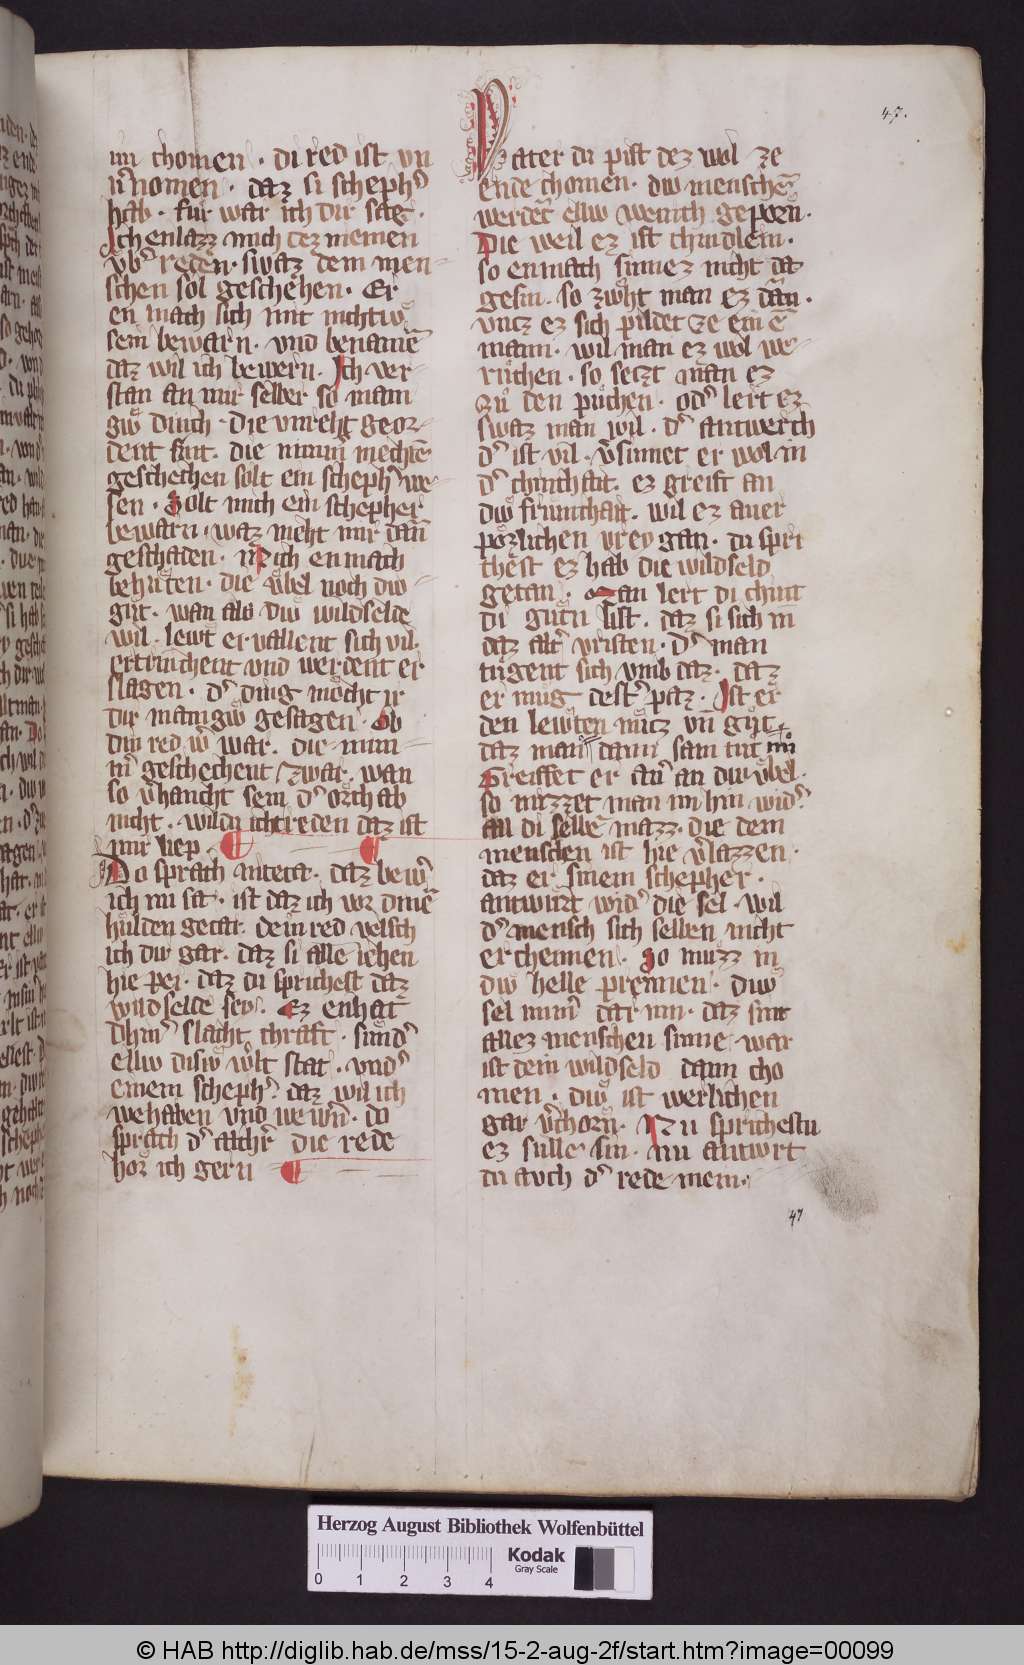 47.
im chomen · di red ist vn
v̄nomen · daz si scheph᷑
hab · fur war ich dir sag ·
Ich enlazz mich dez meinen
vb᷑ reden · swaz dem men-
schen sol geschehen · Er
en mach sich mit nichtwͤ
sein bewarn · vnd benamē
daz wil ich bewern · Ich ver-
stan an mir selber so mani
gwͤ dinch · die vnreht geor-
dent sint · die nimm mechtē
geschechen solt ein scheph᷑ we-
sen · Solt mich ein schepher
bewarn · waz meht mir dañ
geschaden · Nv ich enmach
behuͤten · die vͤbel noch diw
guͤt · wan als diwͤ wildselde
wil · lewt ervallent sich vil
ertrinchent vnd werdent er
slagen · d᷑ ding moͤcht ir
dir manigwͤ gesagen · Ob
din red w᷑ war · die nim-
m᷑ geschechent zwar · wan
so v᷑hancht sein d᷑ orͤch ab
nicht · wildu icht reden daz ist
mir liep ·
Do sprach aniteta · daz bew᷑
ich nu sat · ist daz ich vor dinē
hulden getar · dein red velsch
ich dir gar · daz si alle iehen
hie pei · daz du sprichest daz
wildselde sey · Ez enhat
dhein᷑ slacht chraft · sund᷑
ellw disiw w᷑lt stat · vnd᷑
einem scheph᷑ · daz wil ich
wehaben vnd wew᷑n · do
sprach d᷑ altch᷑r die rede
hor ich gern
Vater du pist dez wol ze
ende chomen · diw menschē
werdēt ellw wenich geporn̄ ·
Die weil ez ist chindlein ·
so enmach sinnez nicht da
gesin · so zwͤht man ez dañ ·
vncz ez sich pildet ze ein ē
mann · wil man ez wol we-
ruͤchen · so setzt man ez
zuͤ den puͤchen · od᷑ lert ez
swaz man wil · d᷑ antwerch
d᷑ ist vil · v᷑sinnet er wol in
d᷑ chintheit · ez greift an
diwͤ frumchait · wil ez auer
poͤzlichen vrey gan · du spri
chest ez hab die wildseld
getan · Man lert di chint
di guͤtn list · daz si sich in
daz alt᷑ vristen · d᷑ man
tugent sich vmb daz · daz
er mug dest᷑ paz · Ist er
den lewͤten nuͤtz vn̄ guͤt
daz man dann sam tut im
Greiffet er au᷑ an diu vbel ·
so mizzet man im hin wid᷑
all di selbē mazz · die dem
menschen ist hie v᷑lazzen ·
daz er sinem schepher ·
antwurt wid᷑ die sel · wil
d᷑ mensch sich selben nicht
erchennen · So muzz in
diwͤ helle prennen · diwͤ
sel nim᷑ dar inn · daz sint
allez menschen sinne · war
ist dein wildseld dann cho
men · diwͤ ist werlichen
gar v᷑chorn̄ · Nu sprichestu
ez sulle sin · nu antwrt
du auch d᷑ rede mein ·
47
Herzog August Bibliothek Wolfenbüttel
0 1 2 3 4
Kodak
Gray Scale
© HAB http://diglib.hab.de/mss/15-2-aug-2f/start.htm?image=00099